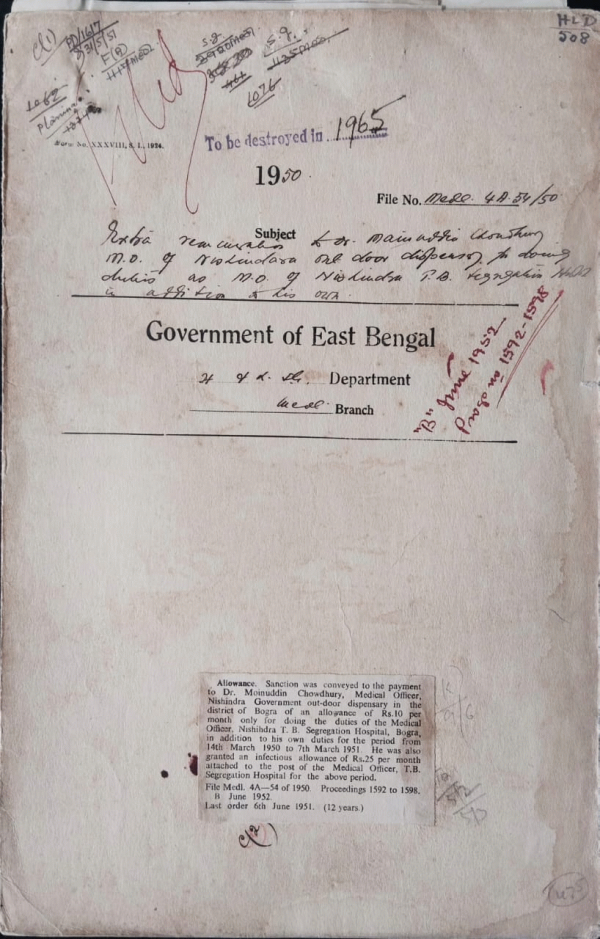 HLD
508
C(1)
Filed
1076
To be destroyed in 1965
Form No. XXXVIII, S. I., 1924.
1950.
File No. Medl. 4A-54/50
Subject
Extra remuneration to Dr. Mainuddin Chowdhury
M.O. of Nishindara out door dispensary for doing
duties as M.O. of Nishindra T.B. Segregation
in addition to his own.
Government of East Bengal
Department
Medl. Branch
"B" June 1952
Progs no 1592-1598
Allowance. Sanction was conveyed to the payment
to Dr. Moinuddin Chowdhury, Medical Officer,
Nishindra Government out-door dispensary in the
district of Bogra of an allowance of Rs.10 per
month only for doing the duties of the Medical
Officer, Nishihdra T. B. Segregation Hospital, Bogra,
in addition to his own duties for the period from
14th March 1950 to 7th March 1951. He was also
granted an infectious allowance of Rs.25 per month
attached to the post of the Medical Officer, T.B.
Segregation Hospital for the above period.
File Medl. 4A—54 of 1950. Proceedings 1592 to 1598.
B June 1952.
Last order 6th June 1951. (12 years.)
C(2)